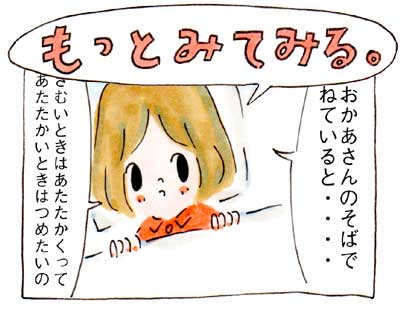 もっとみてみる。
おかあさんのそばで
ねていると・・・・
さむいときはあたたかくって
あたたかいときはつめたいの